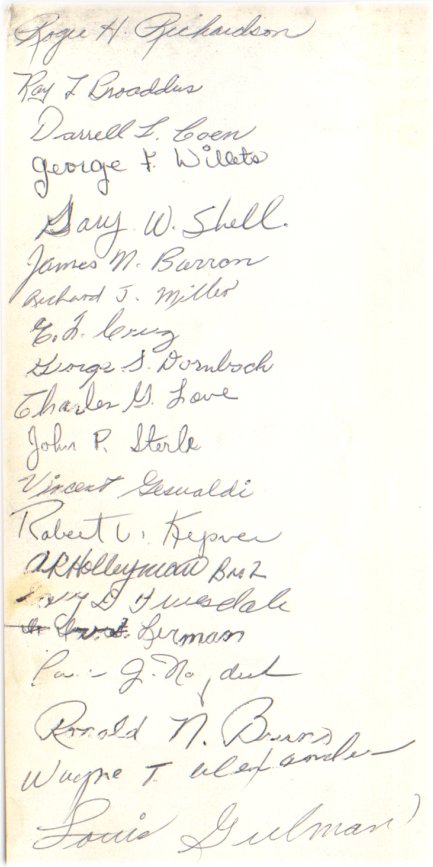 Rogie H. Richardson
Ray L Broaddus
Darrell L. Coen
George F. Willets
Gary W. Shell.
James N. Barron
Richard J. Miller
E. L. Cruz
George S. Dornboch
Charles G. Love
John P. Sterle
Vincent Gesualdi
Robert V. Kepner
Holleyman BM2
D Truesdale
Lerman
J.
Ronald N. Burns
Wayne T. Alexander
Louis Gulman